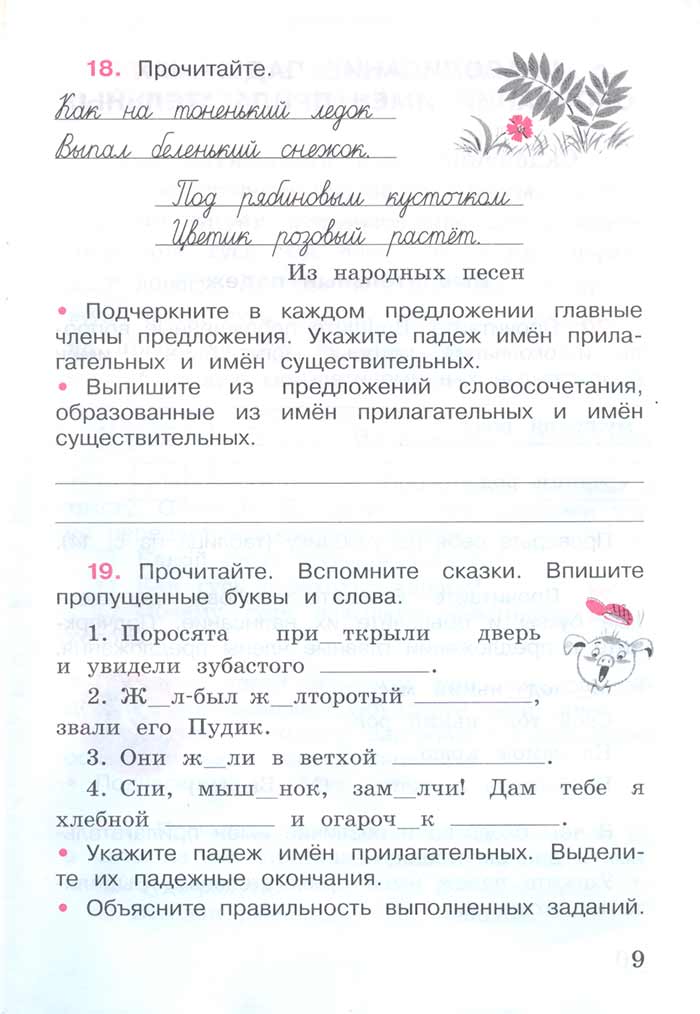 18. Прочитайте.
Как на тоненький ледок
Выпал беленький снежок.
Под рябиновым кусточком
Цветик розовый растёт.
Из народных песен
• Подчеркните в каждом предложении главные
члены предложения. Укажите падеж имён прила-
гательных и имён существительных.
• Выпишите из предложений словосочетания,
образованные из имён прилагательных и имён
существительных.
19. Прочитайте. Вспомните сказки. Впишите
пропущенные буквы и слова.
1. Поросята при__ткрыли дверь
и увидели зубастого ________.
2. Ж__л-был ж__лторотый ________,
звали его Пудик.
3. Они ж__ли в ветхой ________.
4. Спи, мыш__нок, зам__лчи! Дам тебе я
хлебной ________ и огароч__к ________.
• Укажите падеж имён прилагательных. Выдели-
те их падежные окончания.
• Объясните правильность выполненных заданий.
9